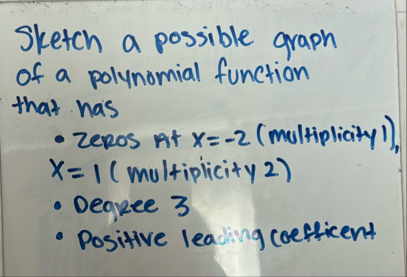 Sketch a possible graph
of a polynomial function
that has
• Zeros At x=-2 (multiplicity 1),
x=1 (multiplicity 2)
• Degree 3
• Positive leading coefficent